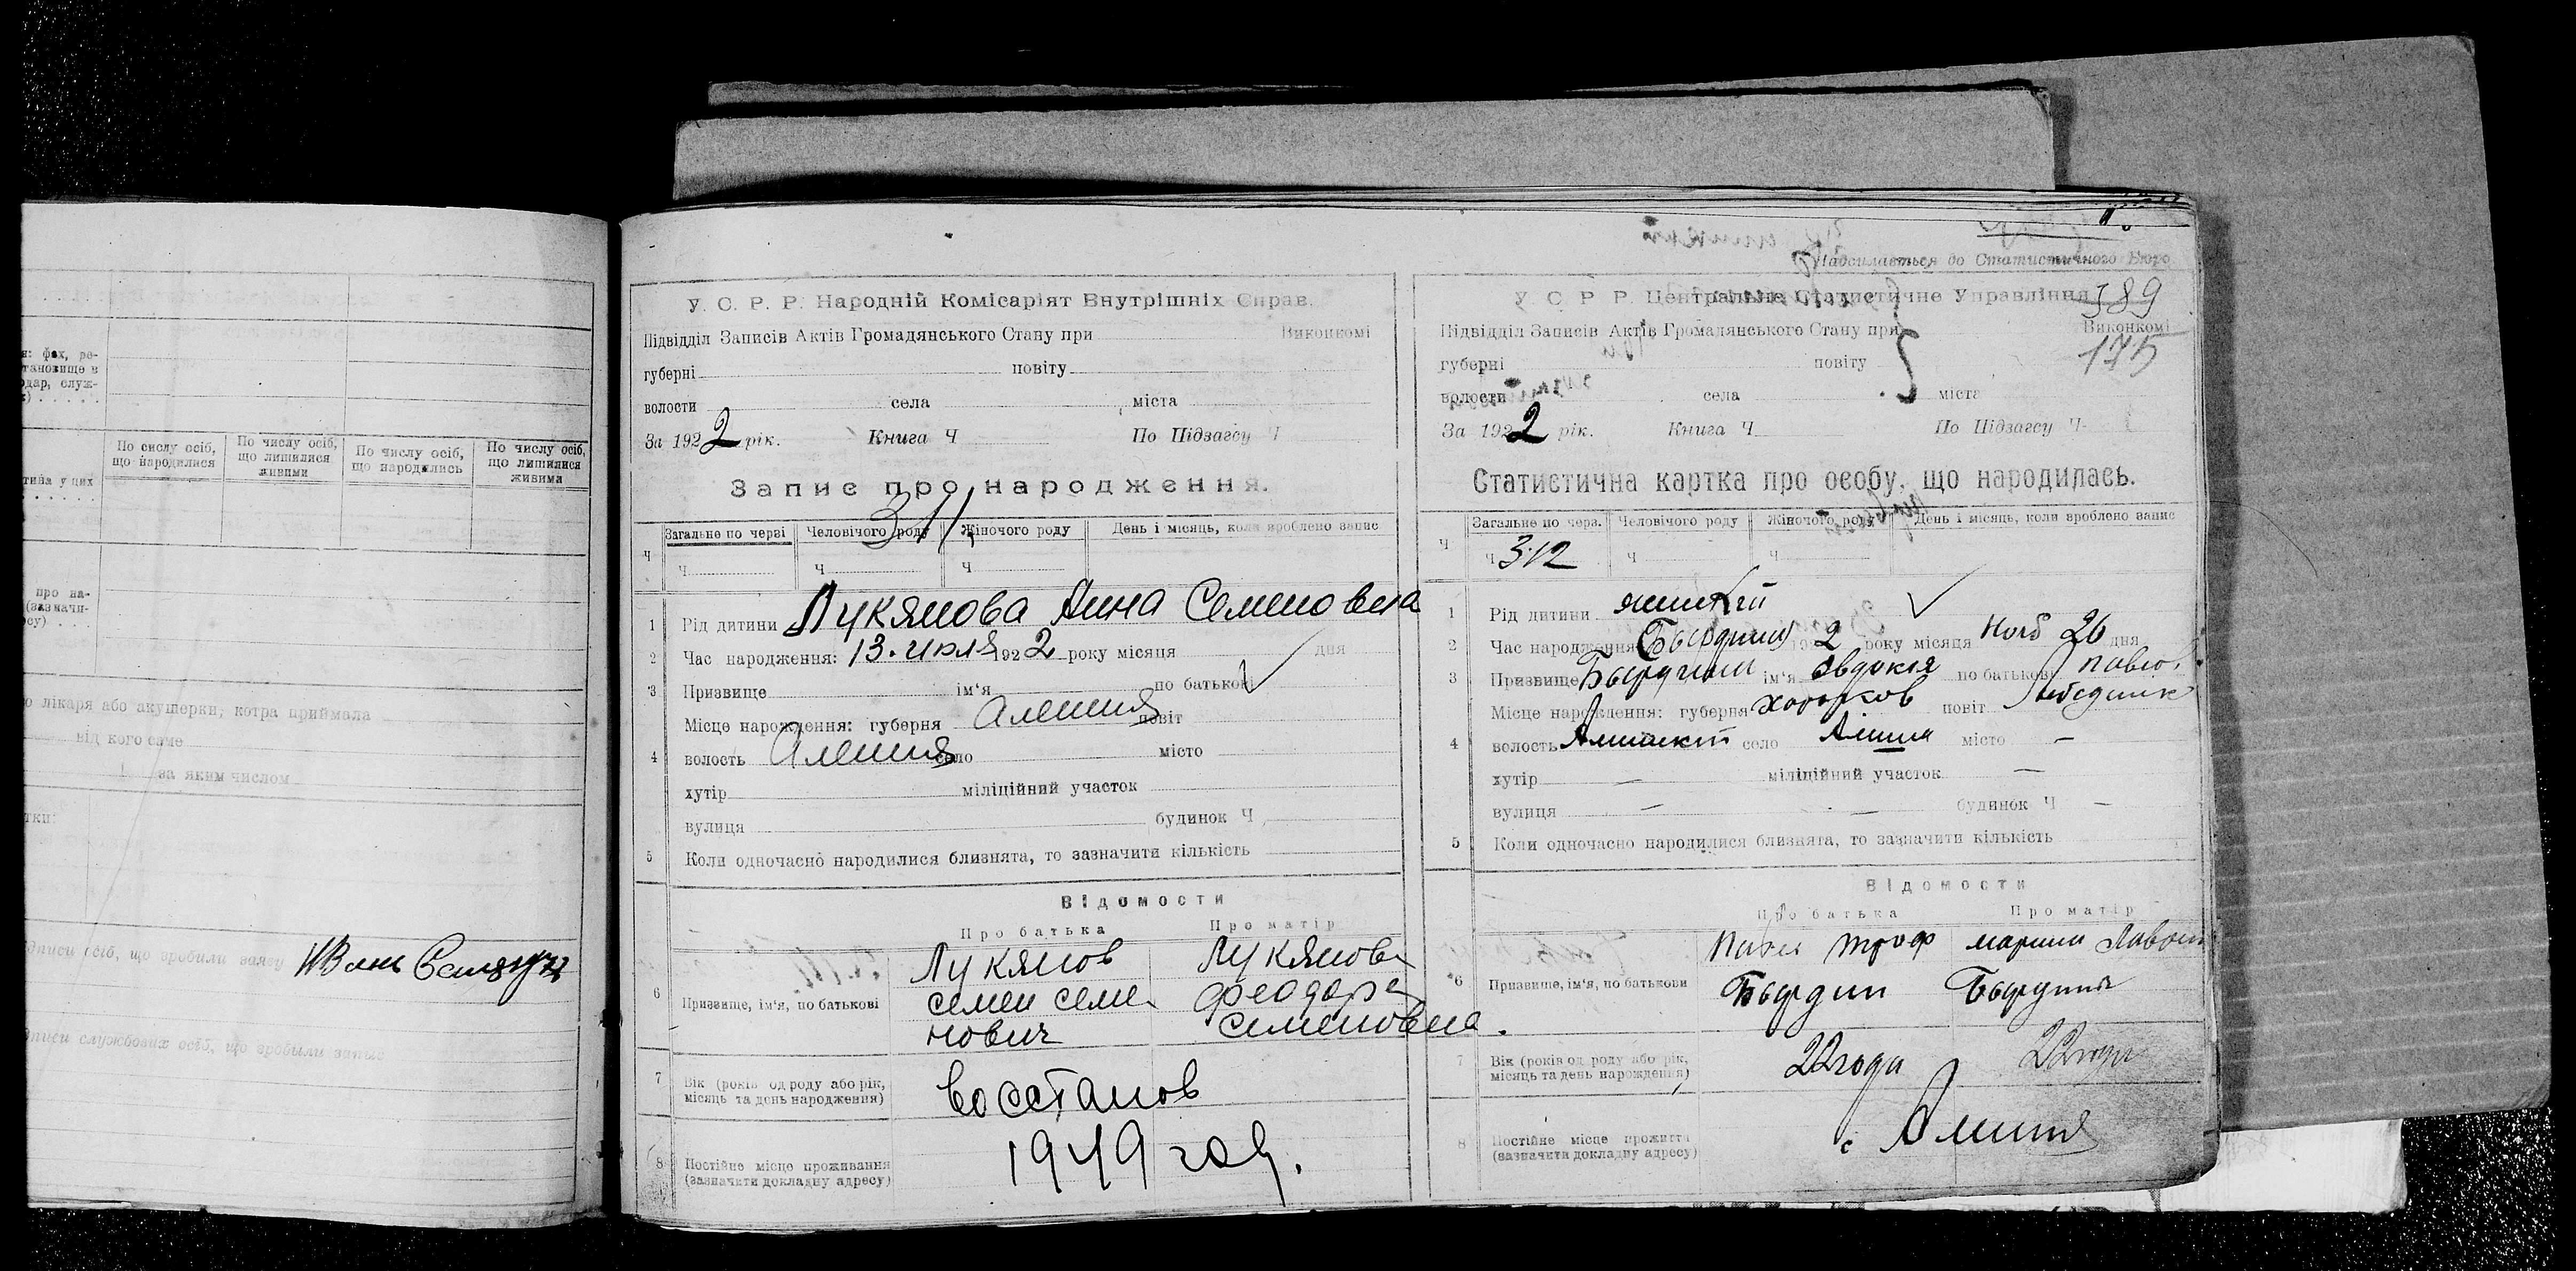 н: фах, ре-
тановище в
одар, служ-
По числу осіб, що народилися
По числу осіб, що лишилися живими
По числу осіб, що народились
По числу осіб, що лишилися живими
тина у цих
про на-
(зазначи-
су)
о лікаря або акушерки, котра приймала
від кого саме
за яким числом
тки:
дписи осіб, що зробили заяву Иванъ
дписи службових осіб, що зробили запис
У. С. Р. Р. Народній Комісаріят Внутрішніх Справ.
Підвідділ Записів Актів Громадянського Стану при Виконкомі
губерні повіту
волости села міста
За 1922 рік. Книга Ч По Підзагсу Ч
Запис про народження.
311
Ч Загальне по черзі Человічого роду Жіночого роду День і місяць, коли зроблено запис
Ч Ч Ч
1 Рід дитини Лукянова Анна Семеновна
2 Час народження: 13. июля 1922 року місяця дня
3 Призвище ім'я по батькові
Місце нарождення: губерня Алешня повіт
4 волость Алешня село місто
хутір міліційний участок
вулиця будинок Ч
5 Коли одночасно народилися близнята, то зазначити кількість
Відомости
Про батька Про матір
6 Призвище, ім'я, по батькові
Лукянов Лукянова
семен семе- феодора
нович семеновна.
7 Вік (років од роду або рік, місяць та день народження)
Восстанов
1949 год.
8 Постійне місце проживання (зазначити докладну адресу)
Надсилається до Статистичного Бюро
У. С. Р. Р. Центральне Статистичне Управління 389
Підвідділ Записів Актів Громадянського Стану при Виконкомі
175
губерні повіту
волости села міста
За 1922 рік. Книга Ч По Підзагсу Ч
Статистична картка про особу, що народилась.
Ч Загальне по черз. Человічого роду Жіночого роду День і місяць, коли зроблено запис
Ч 312 Ч Ч
1 Рід дитини
2 Час народження 1922 року місяця 26 дня
3 Призвище ім'я Евдокия по батькові
Місце нарождення: губерня повіт
4 волость село місто —
хутір — міліційний участок —
вулиця — — будинок Ч —
5 Коли одночасно народилися близнята, то зазначити кількість
Відомости
Про батька Про матір
6 Призвище, ім'я, по батькови
7 Вік (років од роду або рік, місяць та день нарождення)
22 года 22 года
8 Постійне місце прожиття (зазначити докладну адресу)